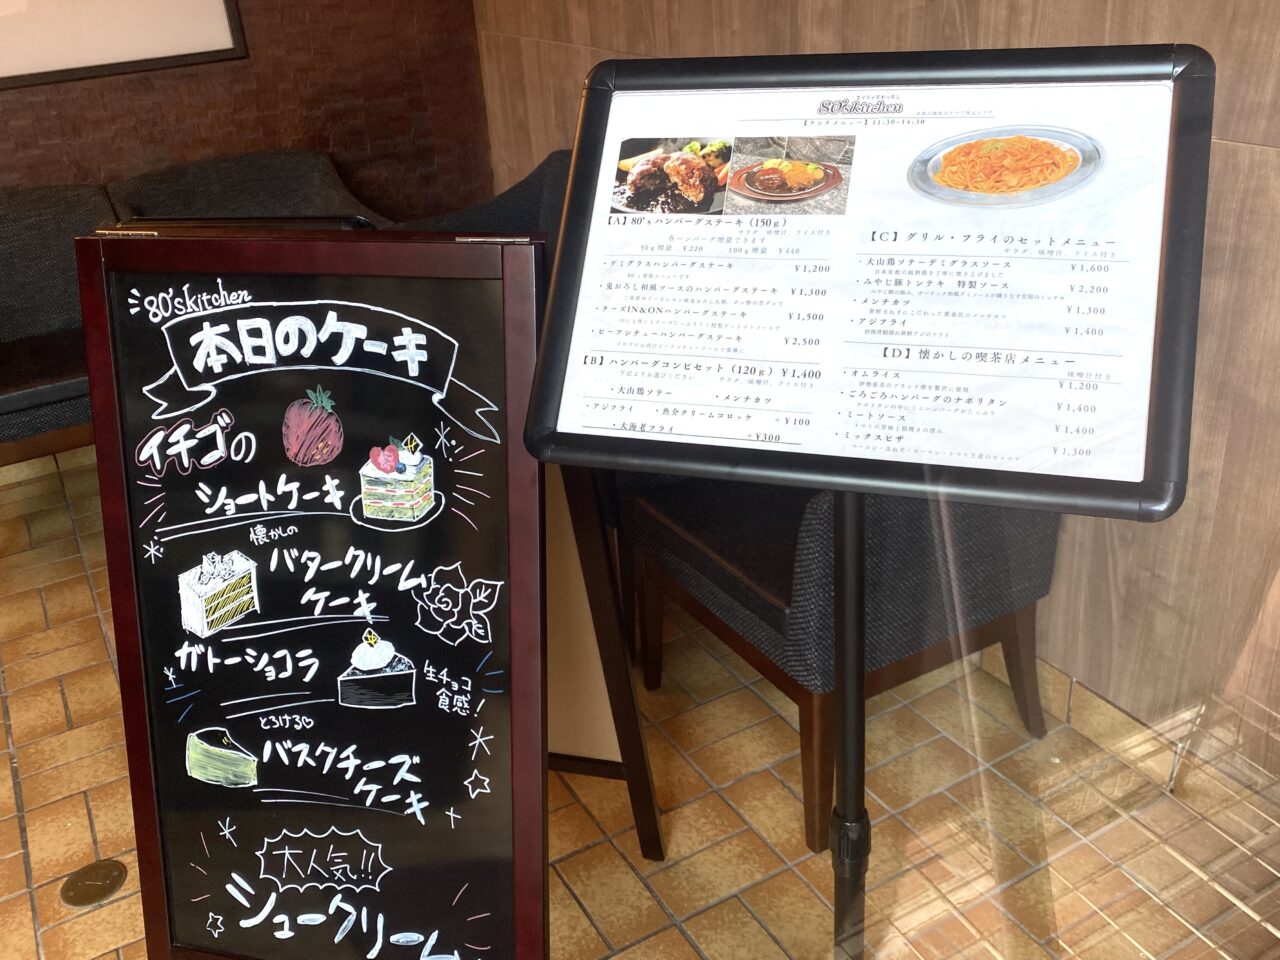 80'skitchen
本日のケーキ
イチゴの
ショートケーキ
懐かしの
バタークリーム
ケーキ
ガトーショコラ
生チョコ
食感!
とろける♡
バスクチーズ
ケーキ
大人気!!
シュークリーム
80'skitchen
【ランチメニュー】11:30-14:30
【A】80's ハンバーグステーキ(150g)
サラダ、味噌汁、ライス付き
各ハンバーグ増量できます
50g増量 ¥220 100g増量 ¥440
・デミグラスハンバーグステーキ ¥1,200
・鬼おろし和風ソースのハンバーグステーキ ¥1,300
・チーズIN&ONハンバーグステーキ ¥1,500
・ビーフシチューハンバーグステーキ ¥2,500
【B】ハンバーグコンビセット(120g)¥1,400
下記よりお選びください サラダ、味噌汁、ライス付き
・大山鶏ソテー ・メンチカツ
・アジフライ ・魚介クリームコロッケ +¥100
・大海老フライ +¥300
【C】グリル・フライのセットメニュー
サラダ、味噌汁、ライス付き
・大山鶏ソテーデミグラスソース ¥1,600
・みやじ豚トンテキ 特製ソース ¥2,200
・メンチカツ ¥1,300
・アジフライ ¥1,400
【D】懐かしの喫茶店メニュー
味噌汁付き
・オムライス ¥1,200
・ごろごろハンバーグのナポリタン ¥1,400
・ミートソース ¥1,400
・ミックスピザ ¥1,300